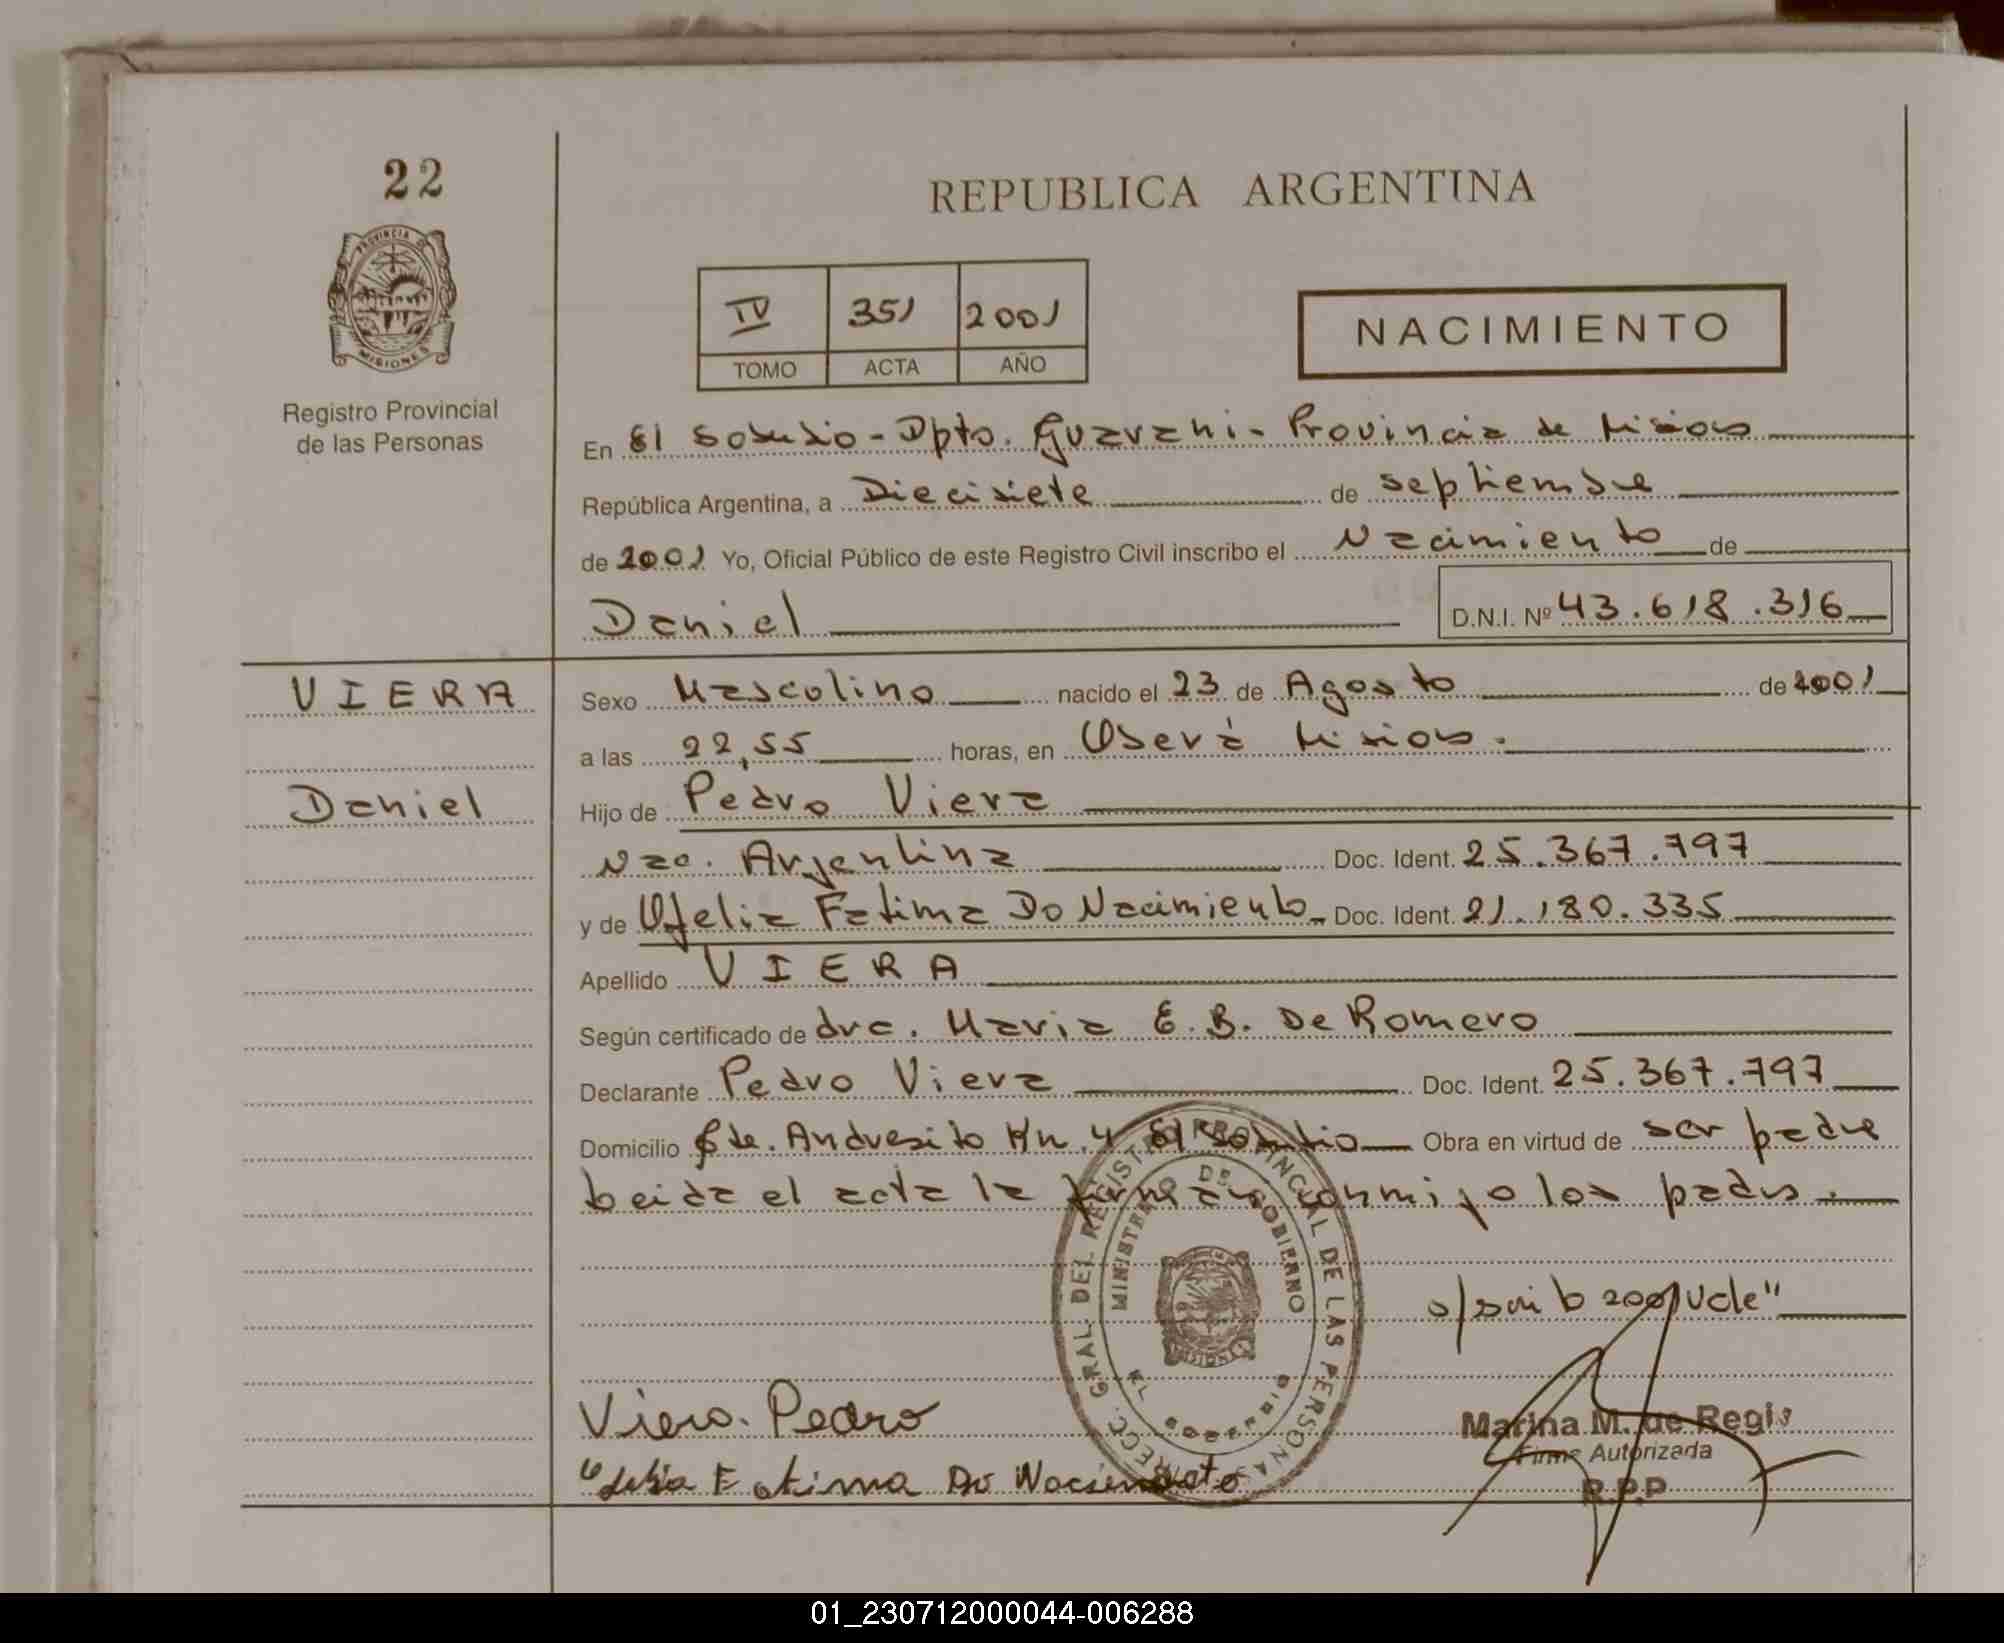 22
PROVINCIA DE
MISIONES
Registro Provincial
de las Personas
REPUBLICA ARGENTINA
IV 351 2001
TOMO ACTA AÑO
NACIMIENTO
En El Soberbio - Dpto. Guarani - Provincia de Misiones
República Argentina, a Diecisiete de septiembre
de 2001 Yo, Oficial Público de este Registro Civil inscribo el Nacimiento de
Daniel D.N.I. Nº 43.618.316
VIERA
Daniel
Sexo Masculino nacido el 23 de Agosto de 2001
a las 22,55 horas, en Oberá Misiones.
Hijo de Pedro Viera
Nac. Argentina Doc. Ident. 25.367.797
y de Ofelia Fatima Do Nacimiento Doc. Ident. 21.180.335
Apellido VIERA
Según certificado de dra. Maria E. B. De Romero
Declarante Pedro Viera Doc. Ident. 25.367.797
Domicilio Cte. Andresito Km. 4 El Soberbio Obra en virtud de ser padre
Leida el acta la firman conmigo los padres.
2001 Vale"
DIRECC. GRAL. DEL REGISTRO PROVINCIAL DE LAS PERSONAS
MINISTERIO DE GOBIERNO
MISIONES
EL SOBERBIO
Viera Pedro
Fatima Do Nacimento
Marina M. de Regis
Firma Autorizada
R.P.P
01_230712000044-006288